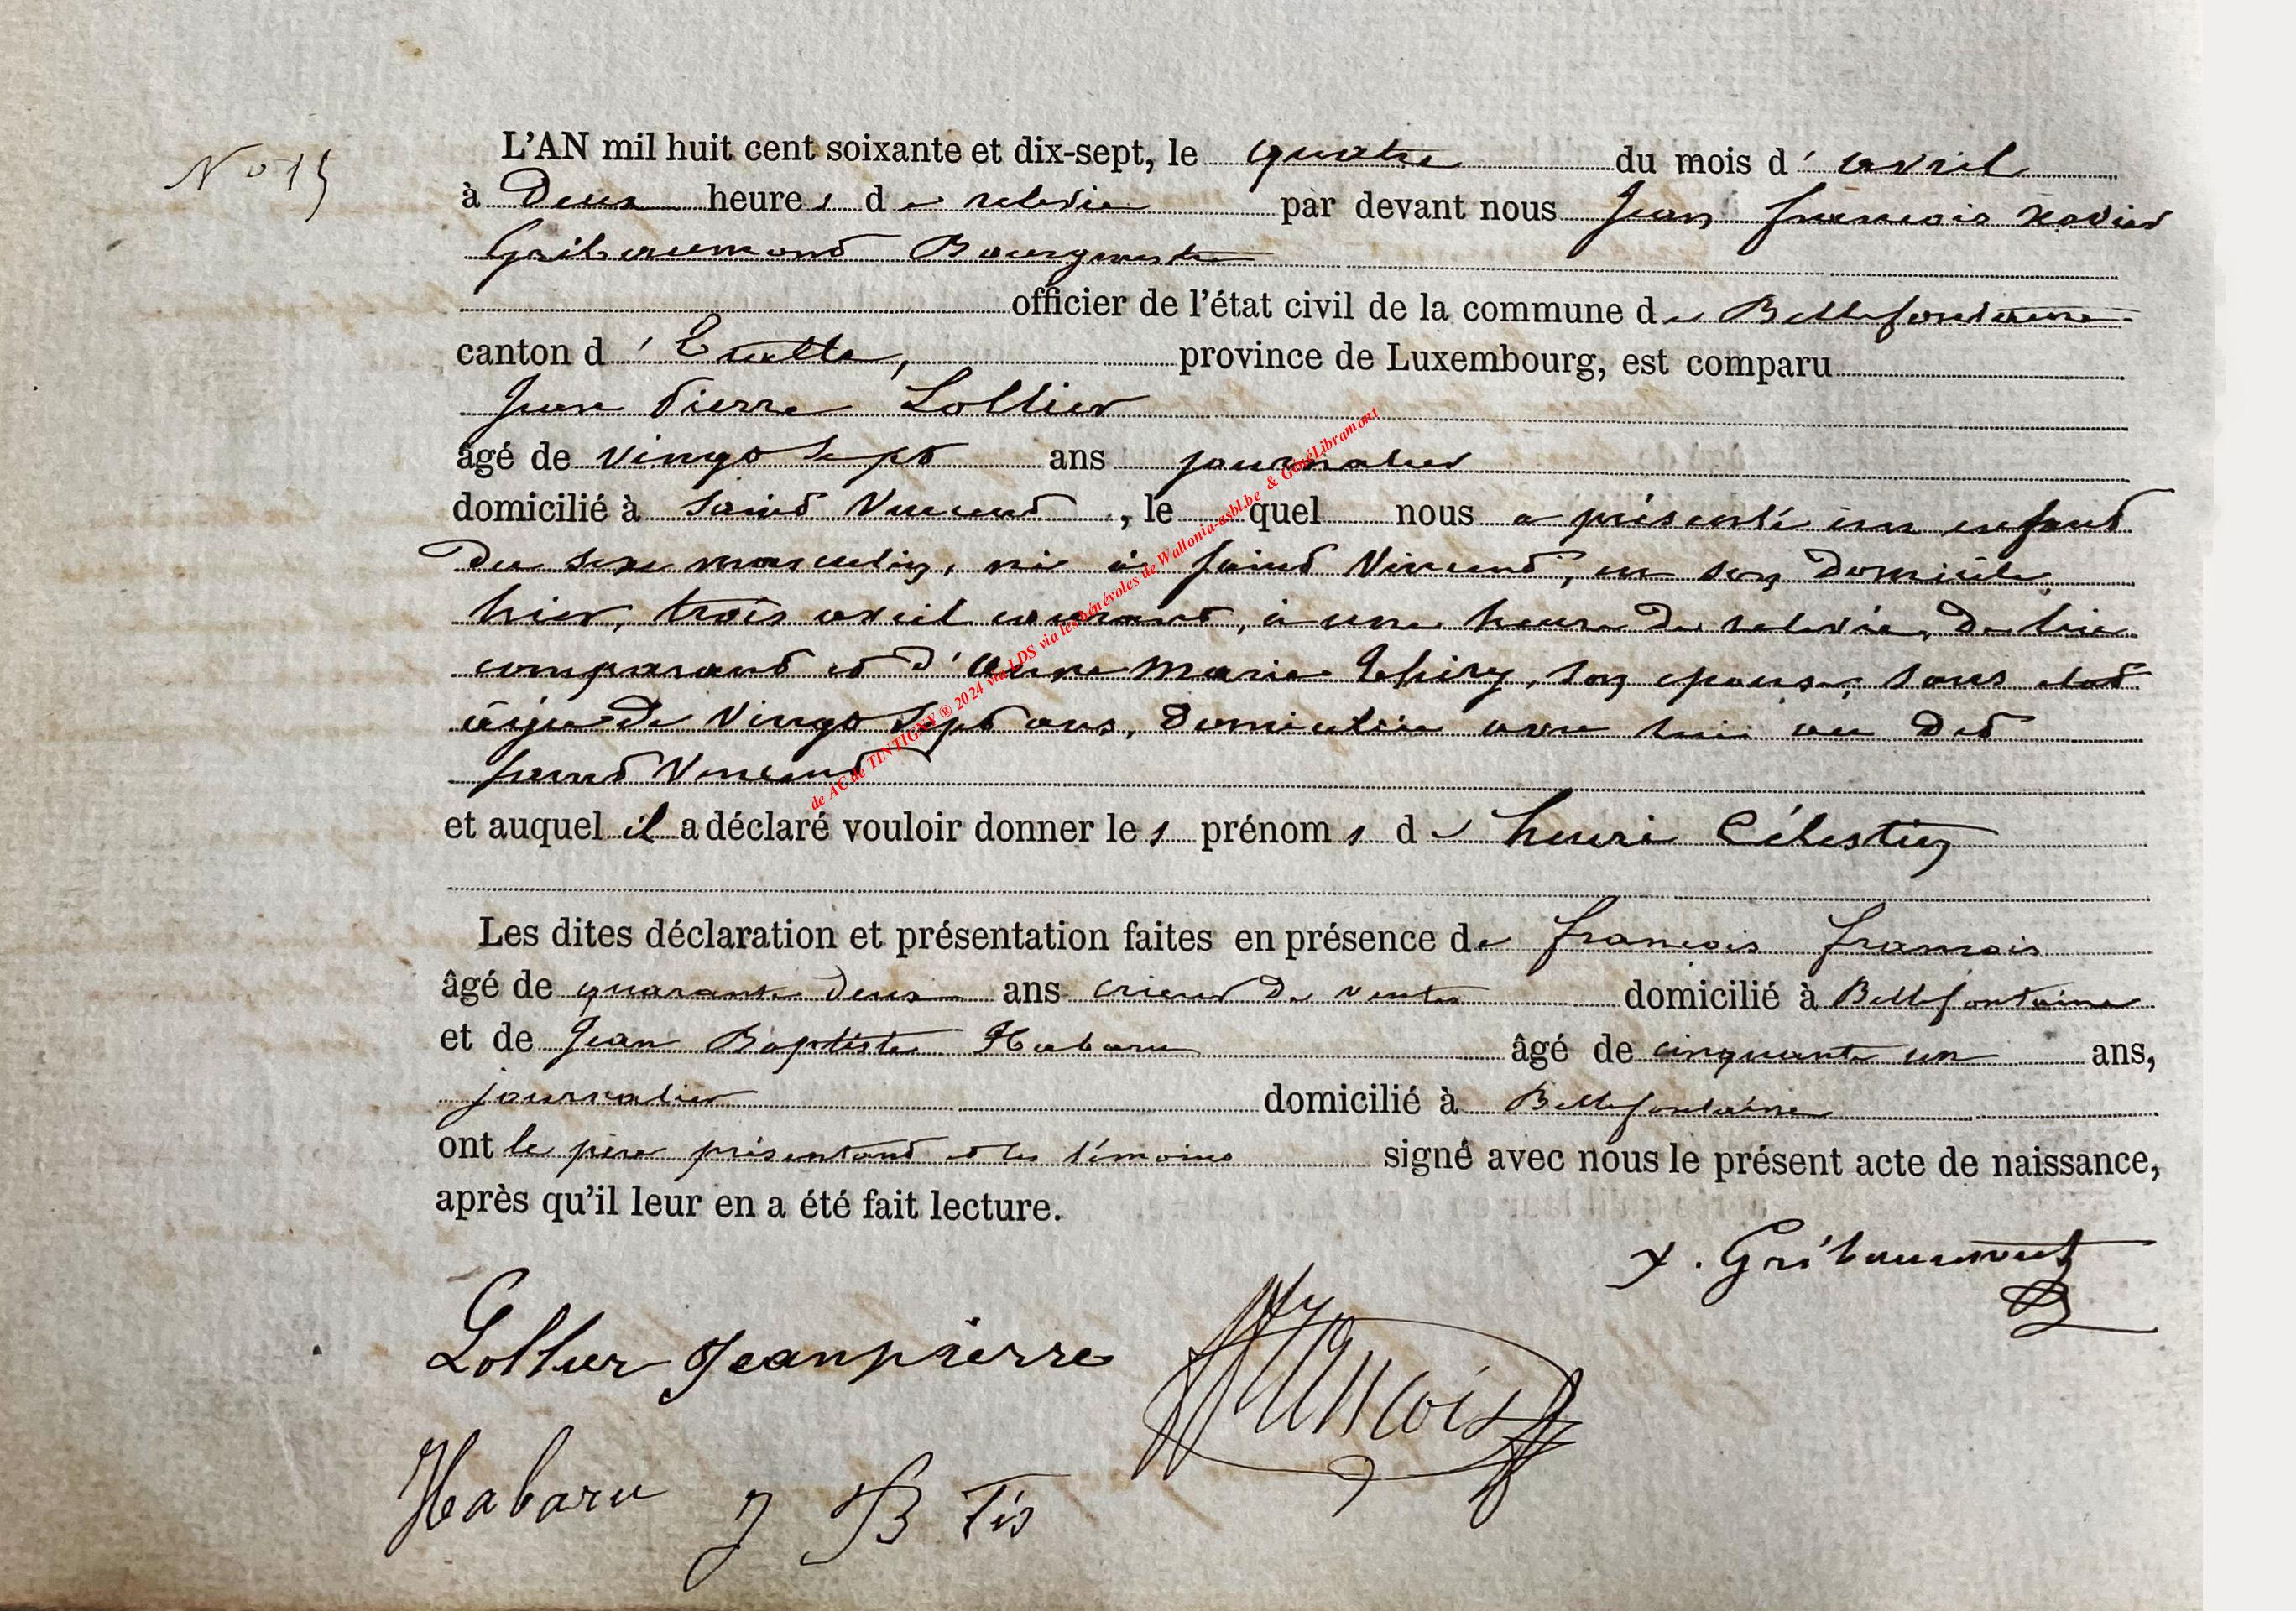 N° 15
L'AN mil huit cent soixante et dix-sept, le quatre du mois d'avril
à Deux heures de relevée par devant nous Jean françois xavier
Gribaumont Bourgmestre
officier de l'état civil de la commune de Bellefontaine
canton d'Etalle, province de Luxembourg, est comparu
Jean Pierre Lollier
âgé de vingt sept ans journalier
domicilié à saint Vincent, lequel nous a présenté un enfant
du sexe masculin, né à saint Vincent, en son domicile
hier, trois avril courant, à une heure de relevée, de lui
comparant et d'Anne Marie Thiry, son épouse, sans état
âgée de Vingt sept ans, domiciliée avec lui au dit
saint Vincent
et auquel il a déclaré vouloir donner les prénoms de henri Célestin
Les dites déclaration et présentation faites en présence de françois françois
âgé de quarante deux ans crieur de ventes domicilié à Bellefontaine
et de Jean Baptiste Habaru âgé de cinquante un ans,
journalier domicilié à Bellefontaine
ont le père présentant et les témoins signé avec nous le présent acte de naissance,
après qu'il leur en a été fait lecture.
x. Gribaumont
Lollier Jeanpierre
françois
Habaru J B Tis
de AC de TINTIGNY ® 2024 via LDS via les bénévoles de Wallonia-asbl.be & GénéLibramont